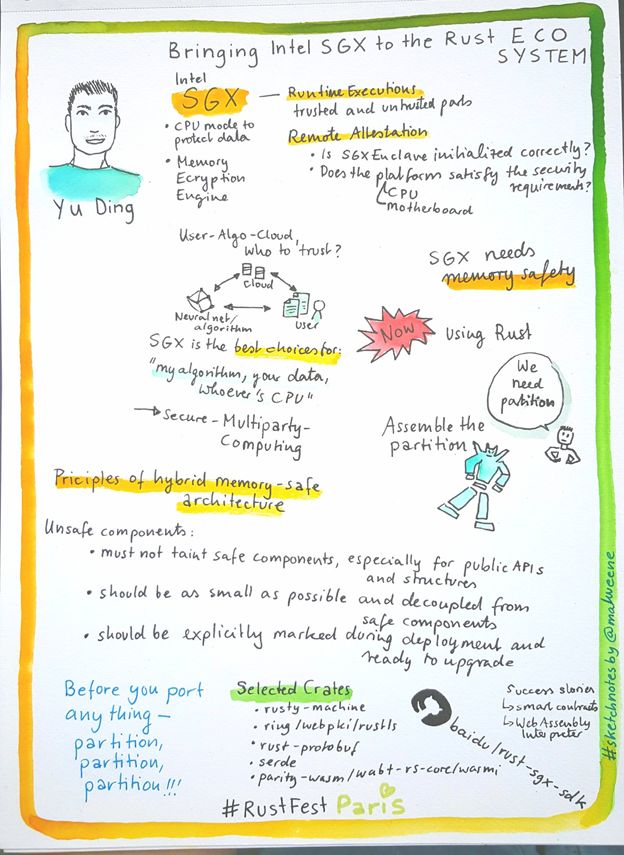 Bringing Intel SGX to the Rust ECO
SYSTEM
Intel
SGX — Runtime Executions
trusted and untrusted parts
• CPU mode to
protect data
• Memory
Ecryption
Engine
Remote Attestation
• Is SGX Enclave initialized correctly?
• Does the platform satisfy the security
requirement?
CPU
motherboard
Yu Ding
User-Algo-Cloud,
who to trust?
Cloud
Neural net/
algorithm
user
SGX is the best choices for:
"my algorithm, your data,
whoever's CPU"
→ Secure-Multiparty-
Computing
SGX needs
memory safety
Now using Rust
We
need
partition
Assemble the
partition
Priciples of hybrid memory-safe
architecture
Unsafe components:
• must not taint safe components, especially for public APIs
and structures
• should be as small as possible and decoupled from
safe components
• should be explicitly marked during deployment and
ready to upgrade
Before you port
any thing —
partition,
partition,
partition!!!
Selected Crates
• rusty-machine
• ring/webpki/rustls
• rust-protobuf
• serde
• parity-wasm/wabt-rs-core/wasmi
baidu/rust-sgx-sdk
Success stories
↳ smart contracts
↳ Web Assembly
Interpreter
#RustFest Paris
#sketchnotes by @malweene